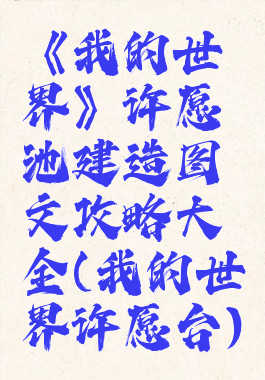 《我的世
界》许愿
池建造图
文攻略大
全(我的世
界许愿台)